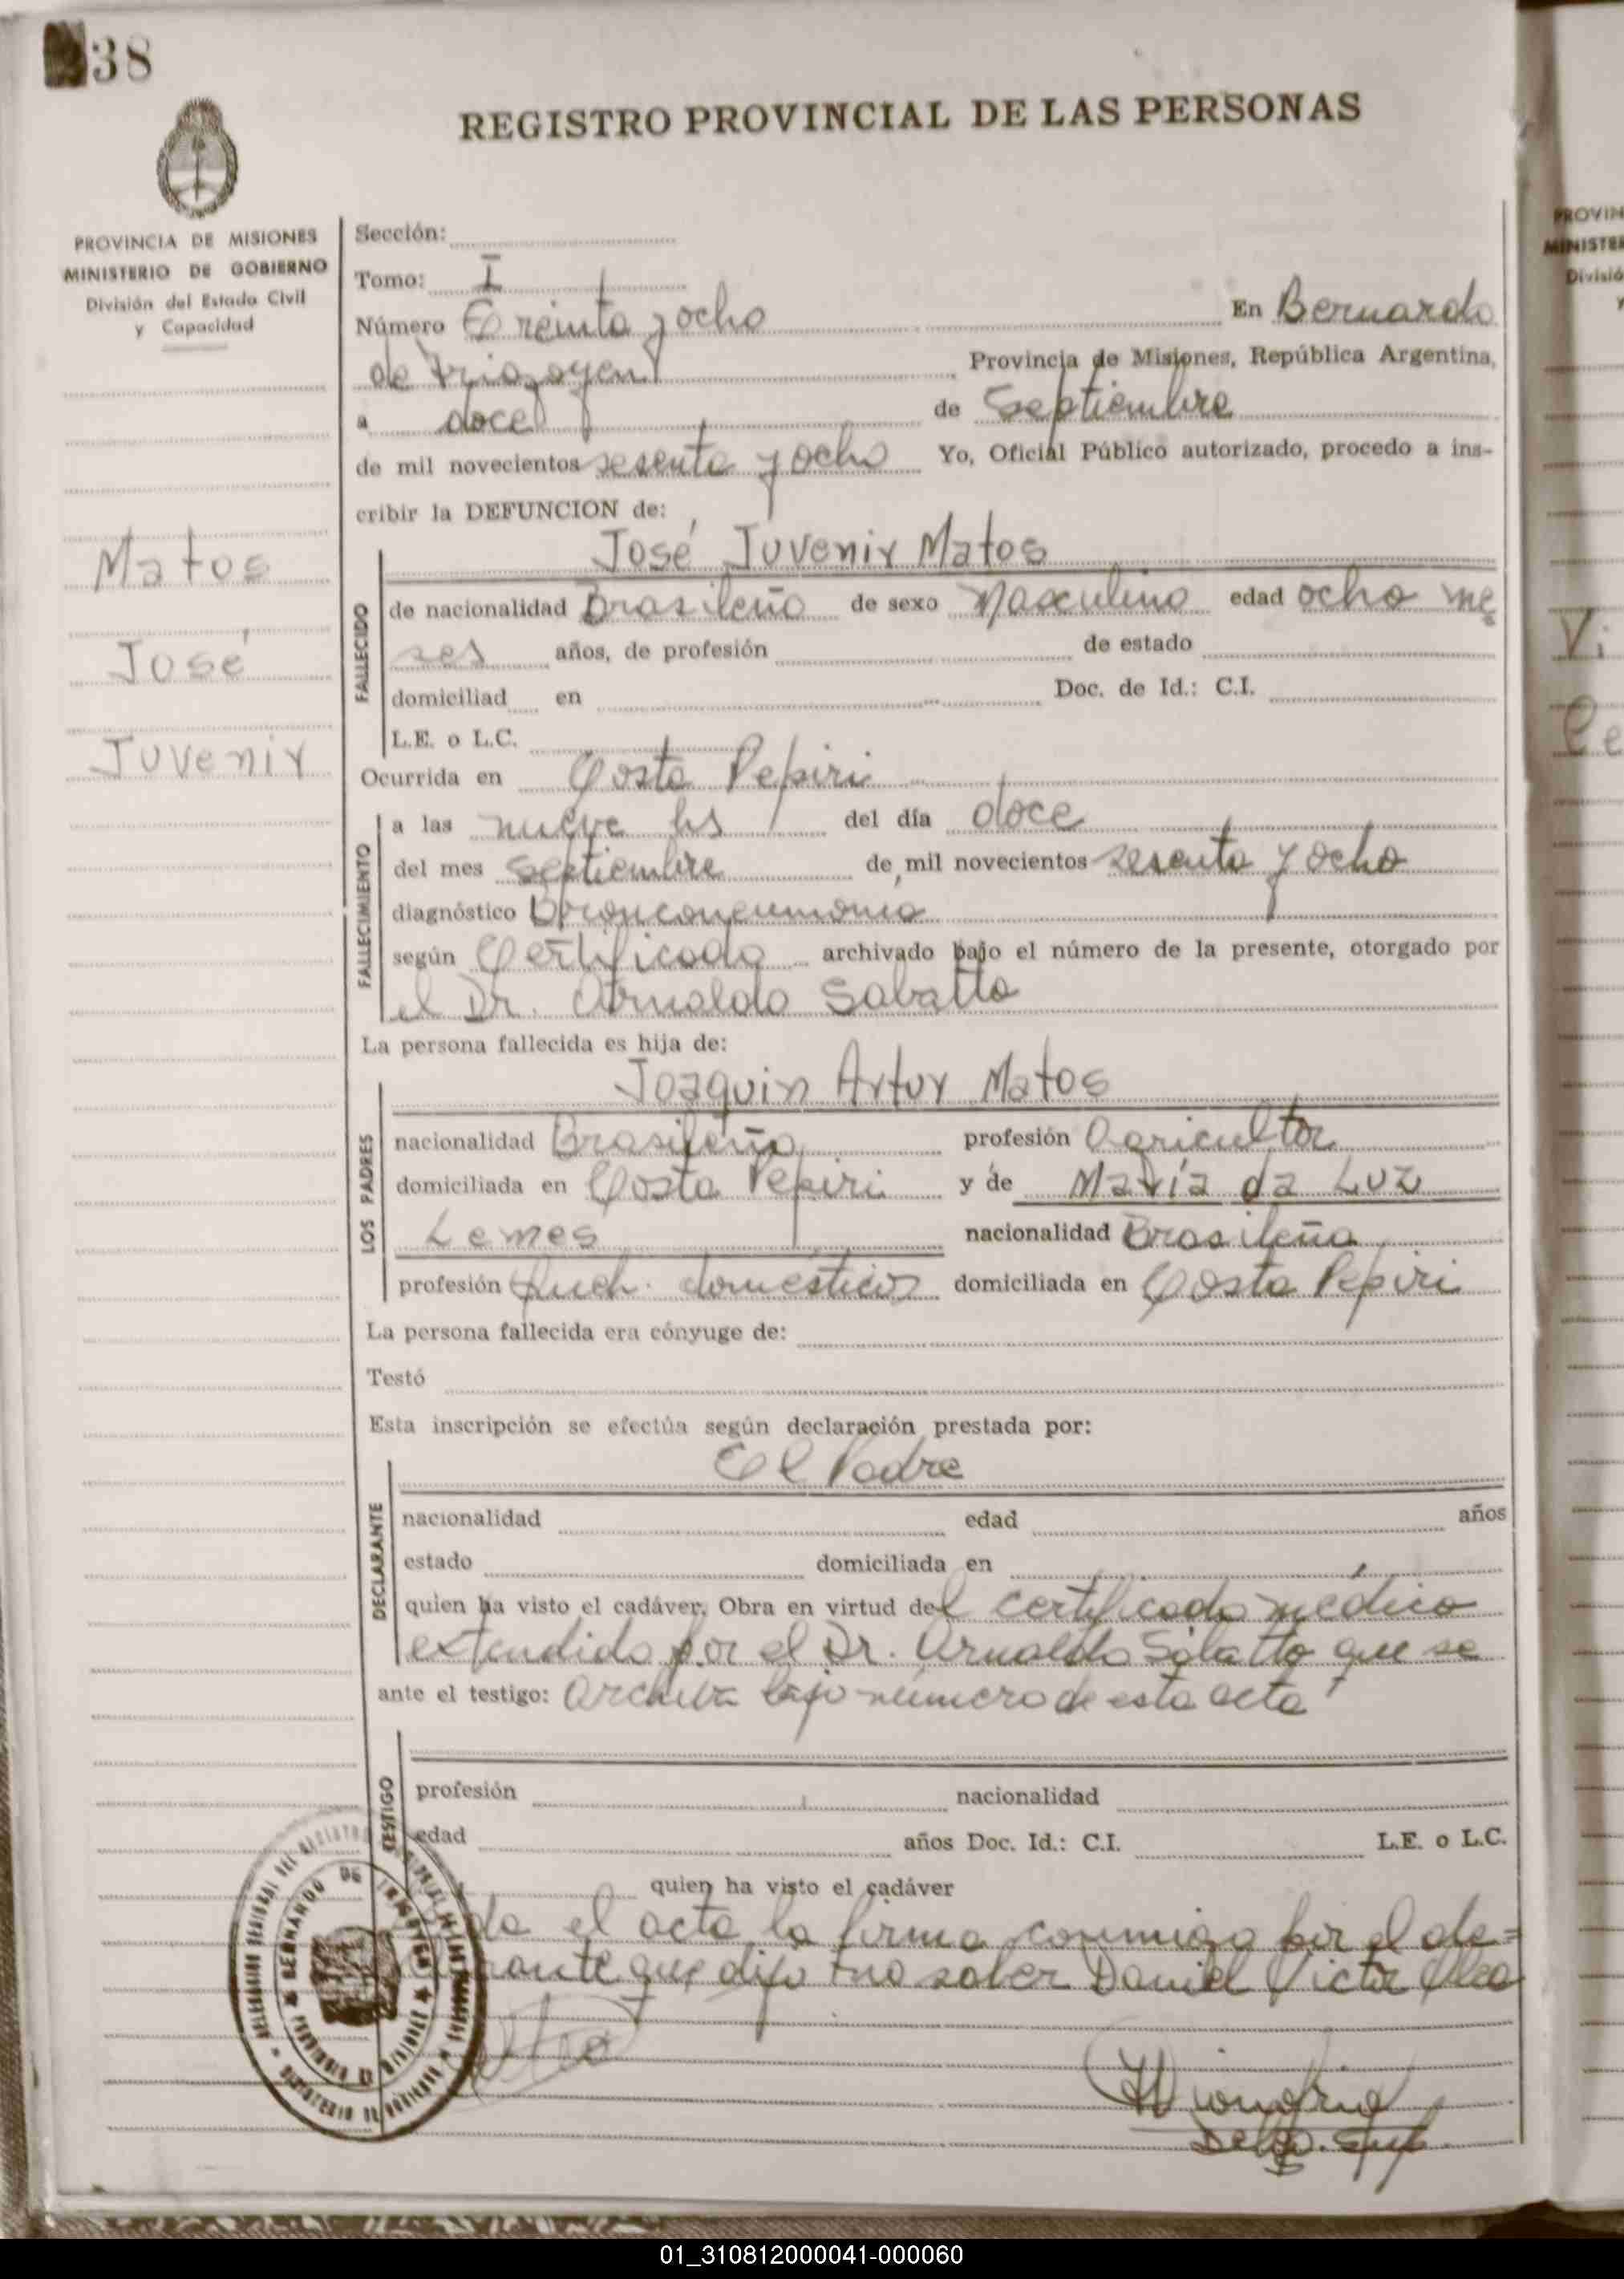 38
REGISTRO PROVINCIAL DE LAS PERSONAS
PROVINCIA DE MISIONES
MINISTERIO DE GOBIERNO
División del Estado Civil
y Capacidad
Matos
José
Juvenir
Sección:
Tomo: I
Número Treinta y ocho En Bernardo
de Irigoyen Provincia de Misiones, República Argentina,
a doce de Septiembre
de mil novecientos sesenta y ocho Yo, Oficial Público autorizado, procedo a ins-
cribir la DEFUNCION de:
José Juvenir Matos
FALLECIDO
de nacionalidad Brasileño de sexo Masculino edad ocho me
ses años, de profesión de estado
domiciliad en Doc. de Id.: C.I.
L.E. o L.C.
Ocurrida en Costa Pepiri
FALLECIMIENTO
a las nueve hs del día doce
del mes Septiembre de mil novecientos sesenta y ocho
diagnóstico Bronconeumonia
según Certificado archivado bajo el número de la presente, otorgado por
el Dr. Arnaldo Sabatto
La persona fallecida es hija de:
Joaquin Artur Matos
LOS PADRES
nacionalidad Brasileña profesión Agricultor
domiciliada en Costa Pepiri y de María da Luz
Lemes nacionalidad Brasileña
profesión Queh. domésticos domiciliada en Costa Pepiri
La persona fallecida era cónyuge de:
Testó
Esta inscripción se efectúa según declaración prestada por:
El Padre
DECLARANTE
nacionalidad edad años
estado domiciliada en
quien ha visto el cadáver. Obra en virtud del certificado médico
extendido por el Dr. Arnaldo Sabatto que se
ante el testigo: archiva bajo número de esta acta
TESTIGO
profesión nacionalidad
edad años Doc. Id.: C.I. L.E. o L.C.
quien ha visto el cadáver
da el acta la firma conmigo por el de=
rante que dijo no saber Daniel Victor
BERNARDO DE IRIGOYEN
Deleg. Sup.
PROVIN
MINISTER
Divisió
y
Vi
Pe
01_310812000041-000060